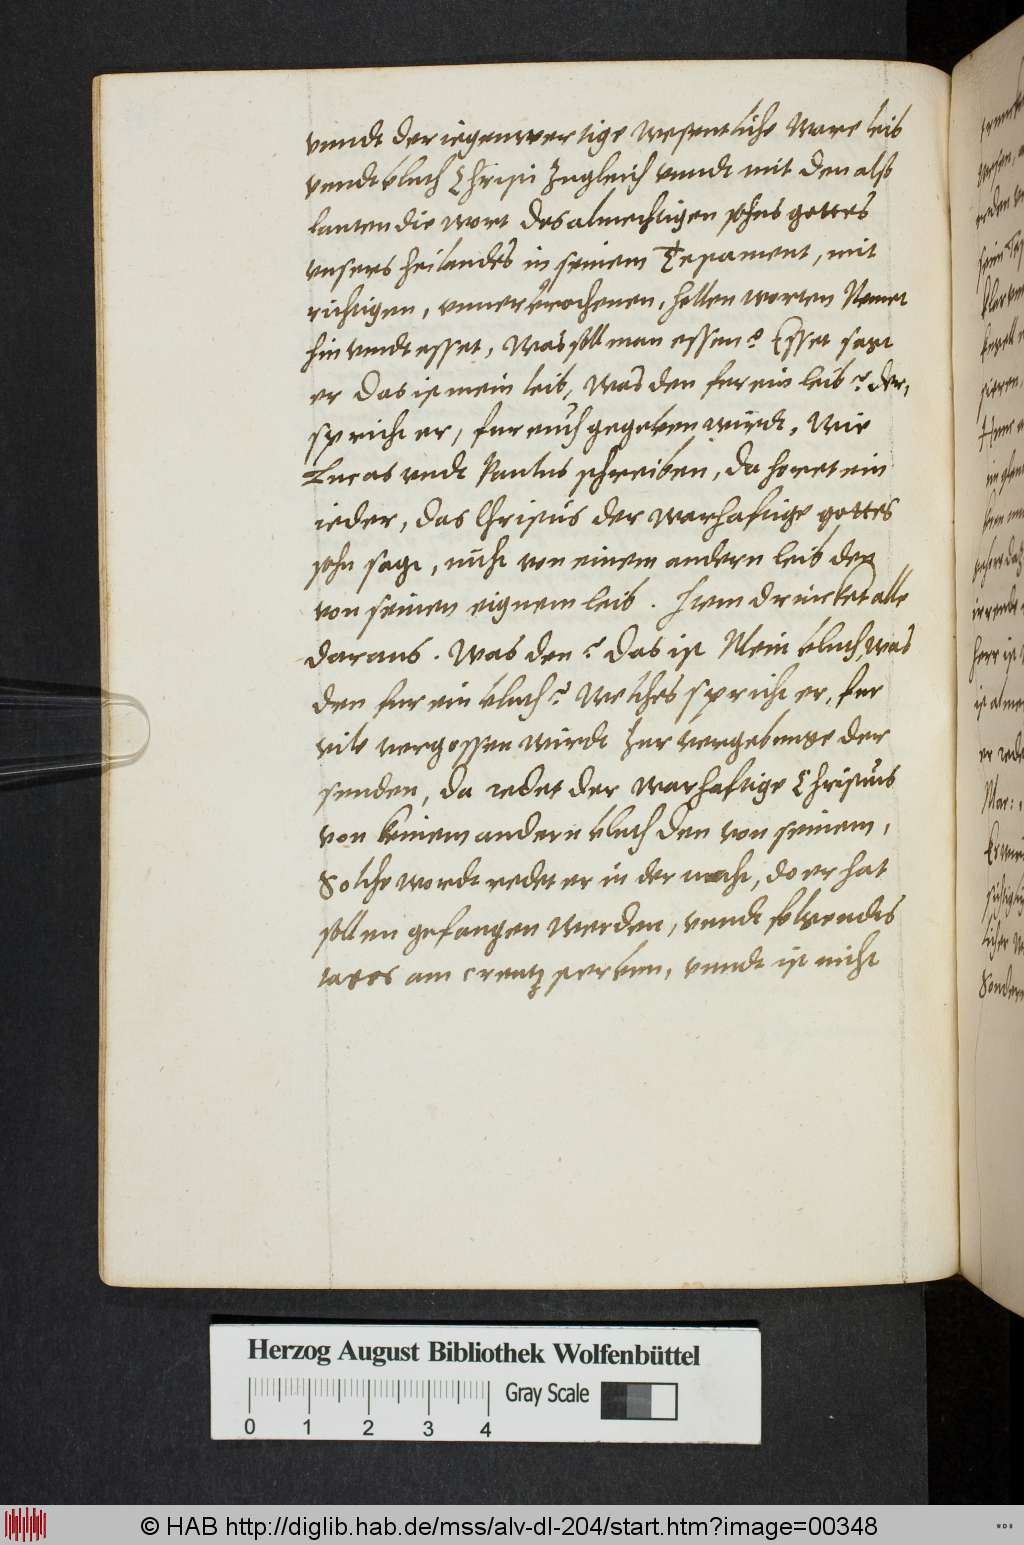 vnndt der iegenwertige wesentliche ware leib
vnndt bluth Christi zugleich vnndt mit den als
lauten die wort des almechtigen sohns gottes
vnsers heilandes in seinem Testament, mit
richtigen, vnuerbrochenen, hellen worten Nemet
hin vndt esset, Was soll man essen? Esset sagt
er Das ist mein leib, Was den fur ein leib? der,
spricht er, fur euch gegeben wirdt, Wie
Lucas vndt Paulus schreiben, da horet ein
ieder, das Christus der warhaftige gottes
sohn sagt, nicht von einem andern leib den
von seinen eignem leib. Item drincket alle
daraus. Was den? das ist Mein bluth, was
den fur ein bluth? Welches spricht er, fur
vile vergossen wirdt zur vergebunge der
senden, da redet der warhaftige Christus
von keinem andern bluth den von seinem,
Solche wordt redet er in der nacht, do er hat
sollen gefangen werden, vnndt folgendes
tages am creutz sterben, vnndt ist nicht
Herzog August Bibliothek Wolfenbüttel
Gray Scale
0 1 2 3 4
© HAB http://diglib.hab.de/mss/alv-dl-204/start.htm?image=00348